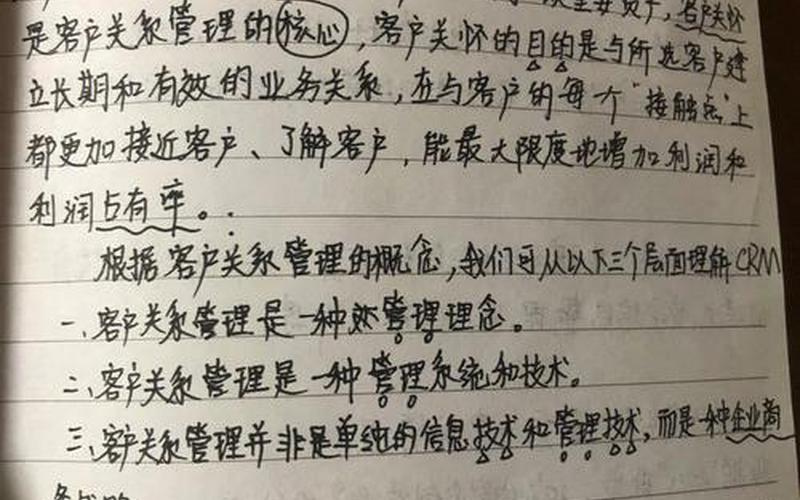 客户关怀
是客户关系管理的核心,客户关怀的目的是与所选客户建
立长期和有效的业务关系,在与客户的每个"接触点"上
都更加接近客户、了解客户,能最大限度地增加利润和
利润占有率。
根据客户关系管理的概念,我们可从以下三个层面理解CRM
一、客户关系管理是一种管理理念。
二、客户关系管理是一种管理系统和技术。
三、客户关系管理并非是单纯的信息技术和管理技术,而是一种企业商